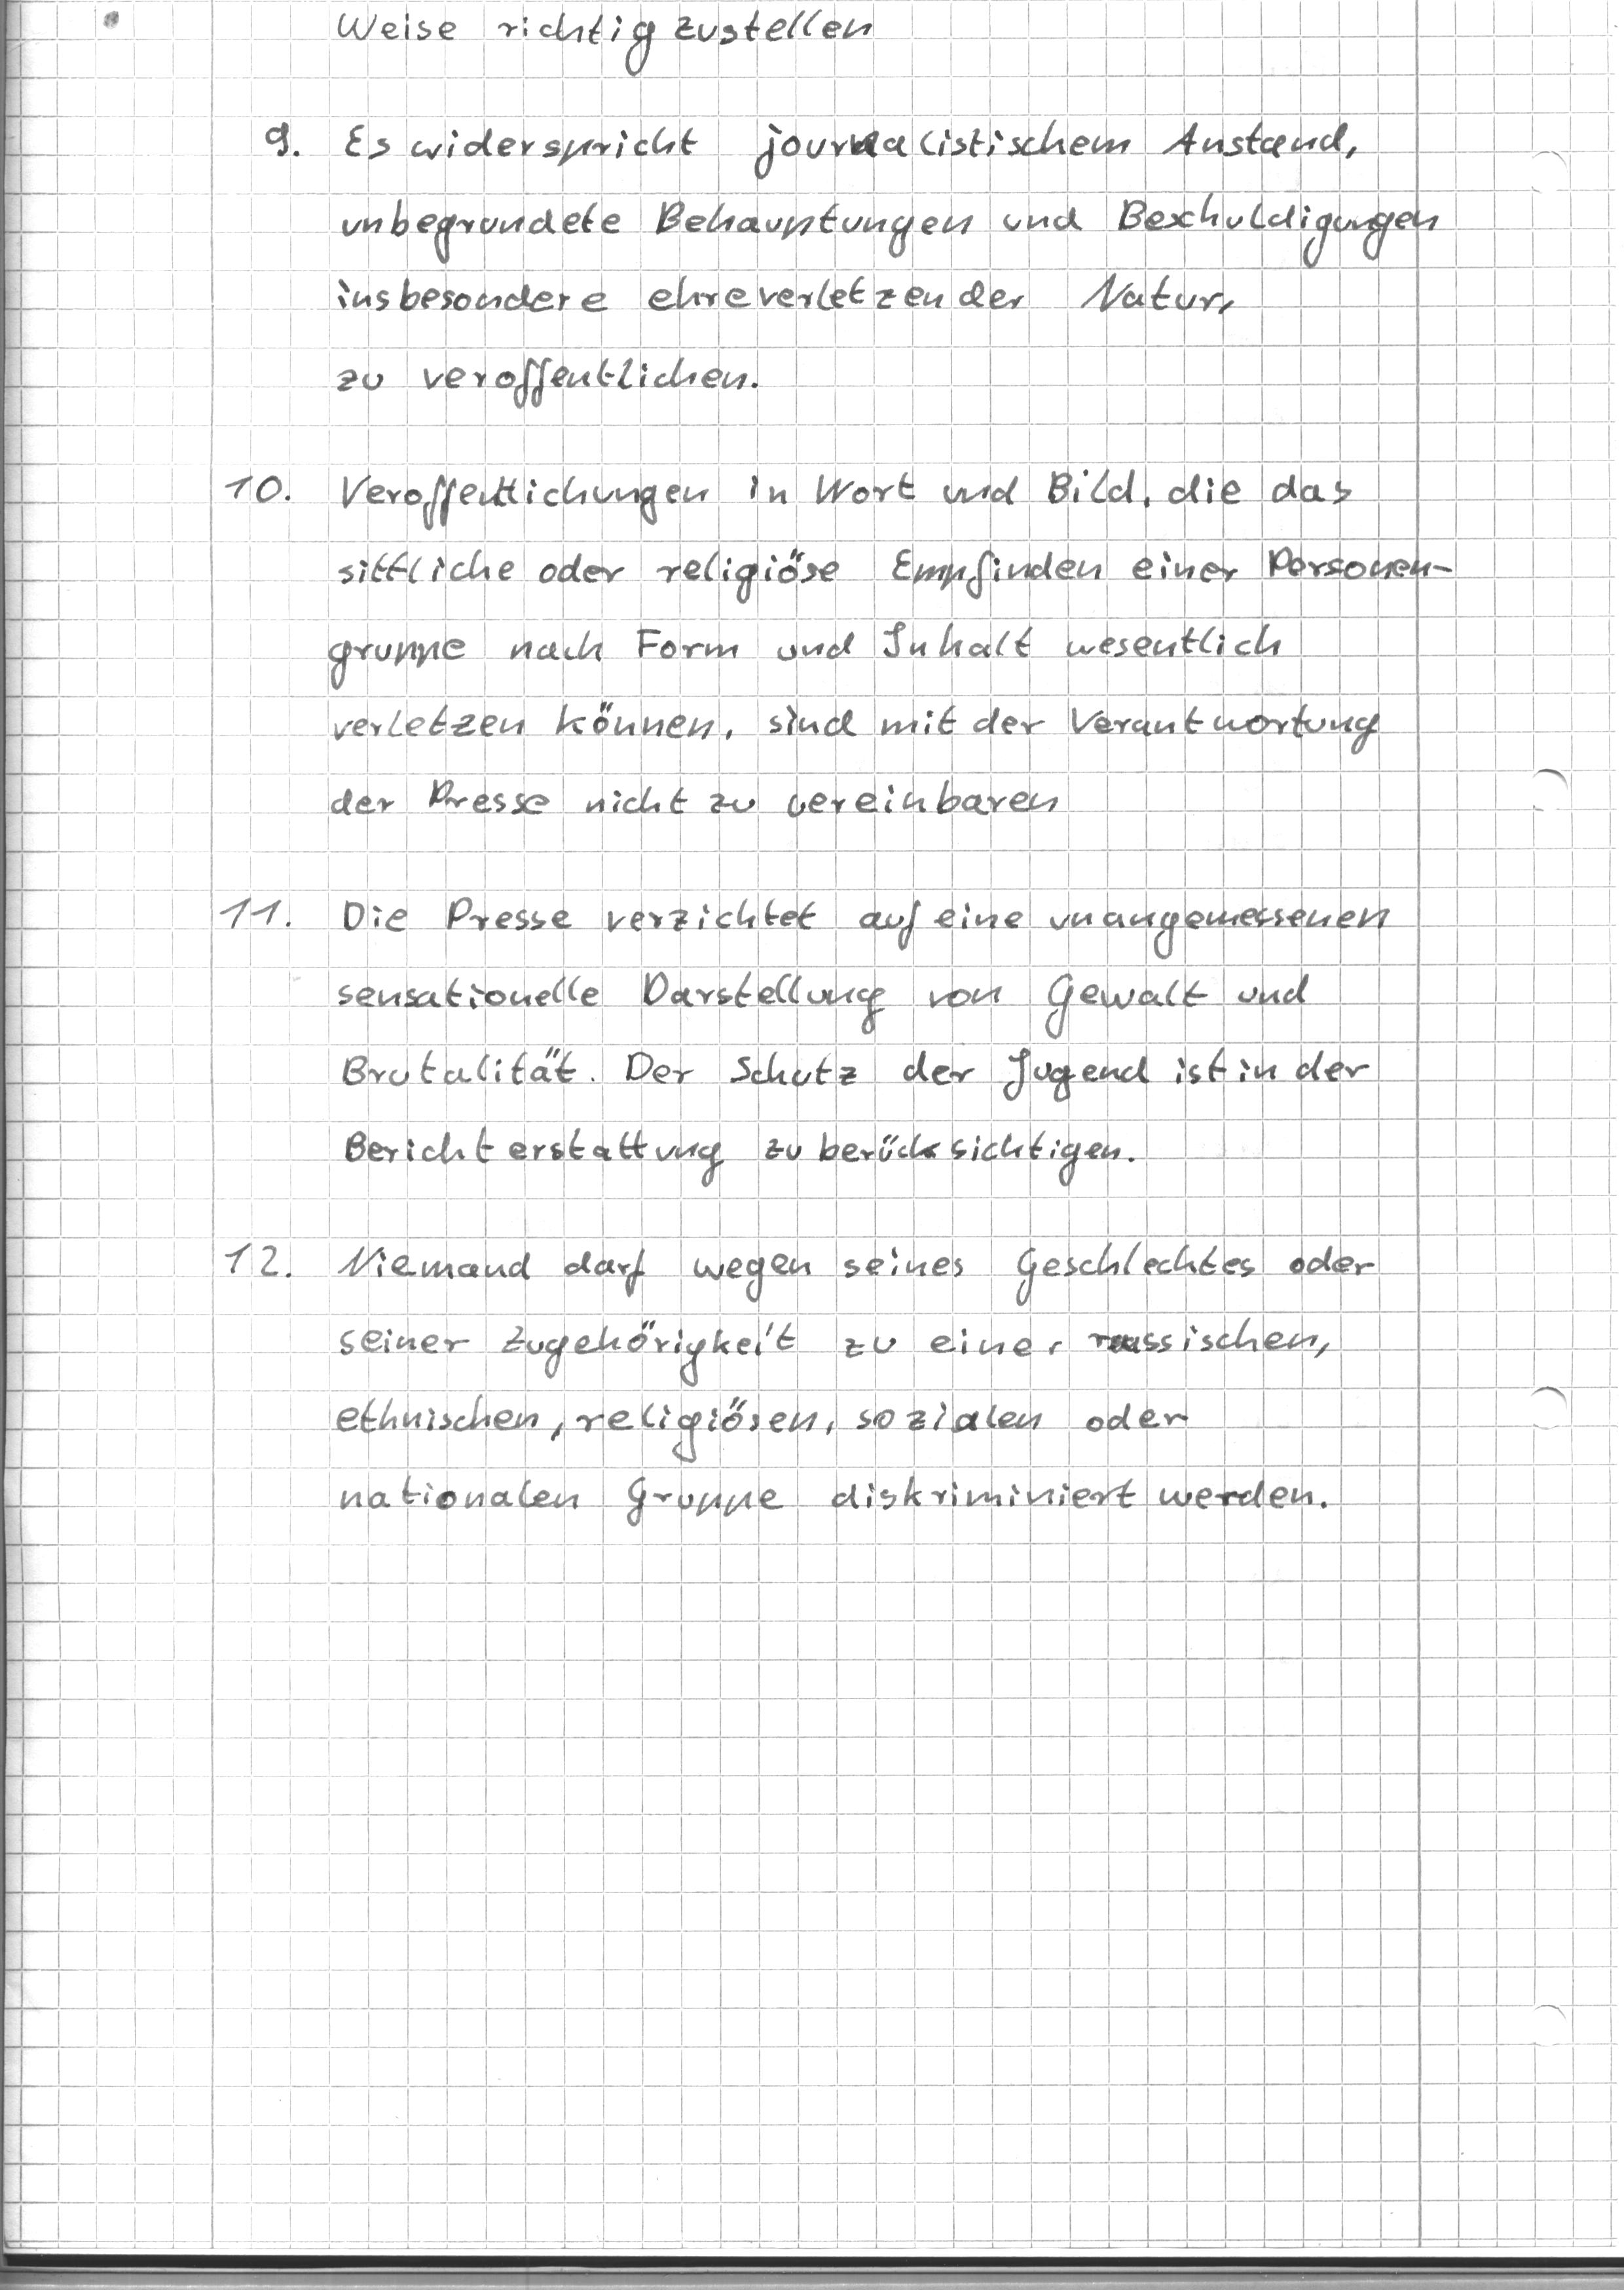 Weise richtigzustellen
9. Es widerspricht journalistischem Anstand,
unbegrundete Behauptungen und Beschuldigungen
insbesondere ehreverletzender Natur,
zu veroffentlichen.
10. Veroffentlichungen in Wort und Bild, die das
sittliche oder religiöse Empfinden einer Personen-
gruppe nach Form und Inhalt wesentlich
verletzen können, sind mit der Verantwortung
der Presse nicht zu vereinbaren
11. Die Presse verzichtet auf eine unangemessenen
sensationelle Darstellung von Gewalt und
Brutalität. Der Schutz der Jugend ist in der
Berichterstattung zu berücksichtigen.
12. Niemand darf wegen seines Geschlechtes oder
seiner Zugehörigkeit zu einer rassischen,
ethnischen, religiösen, sozialen oder
nationalen Gruppe diskriminiert werden.